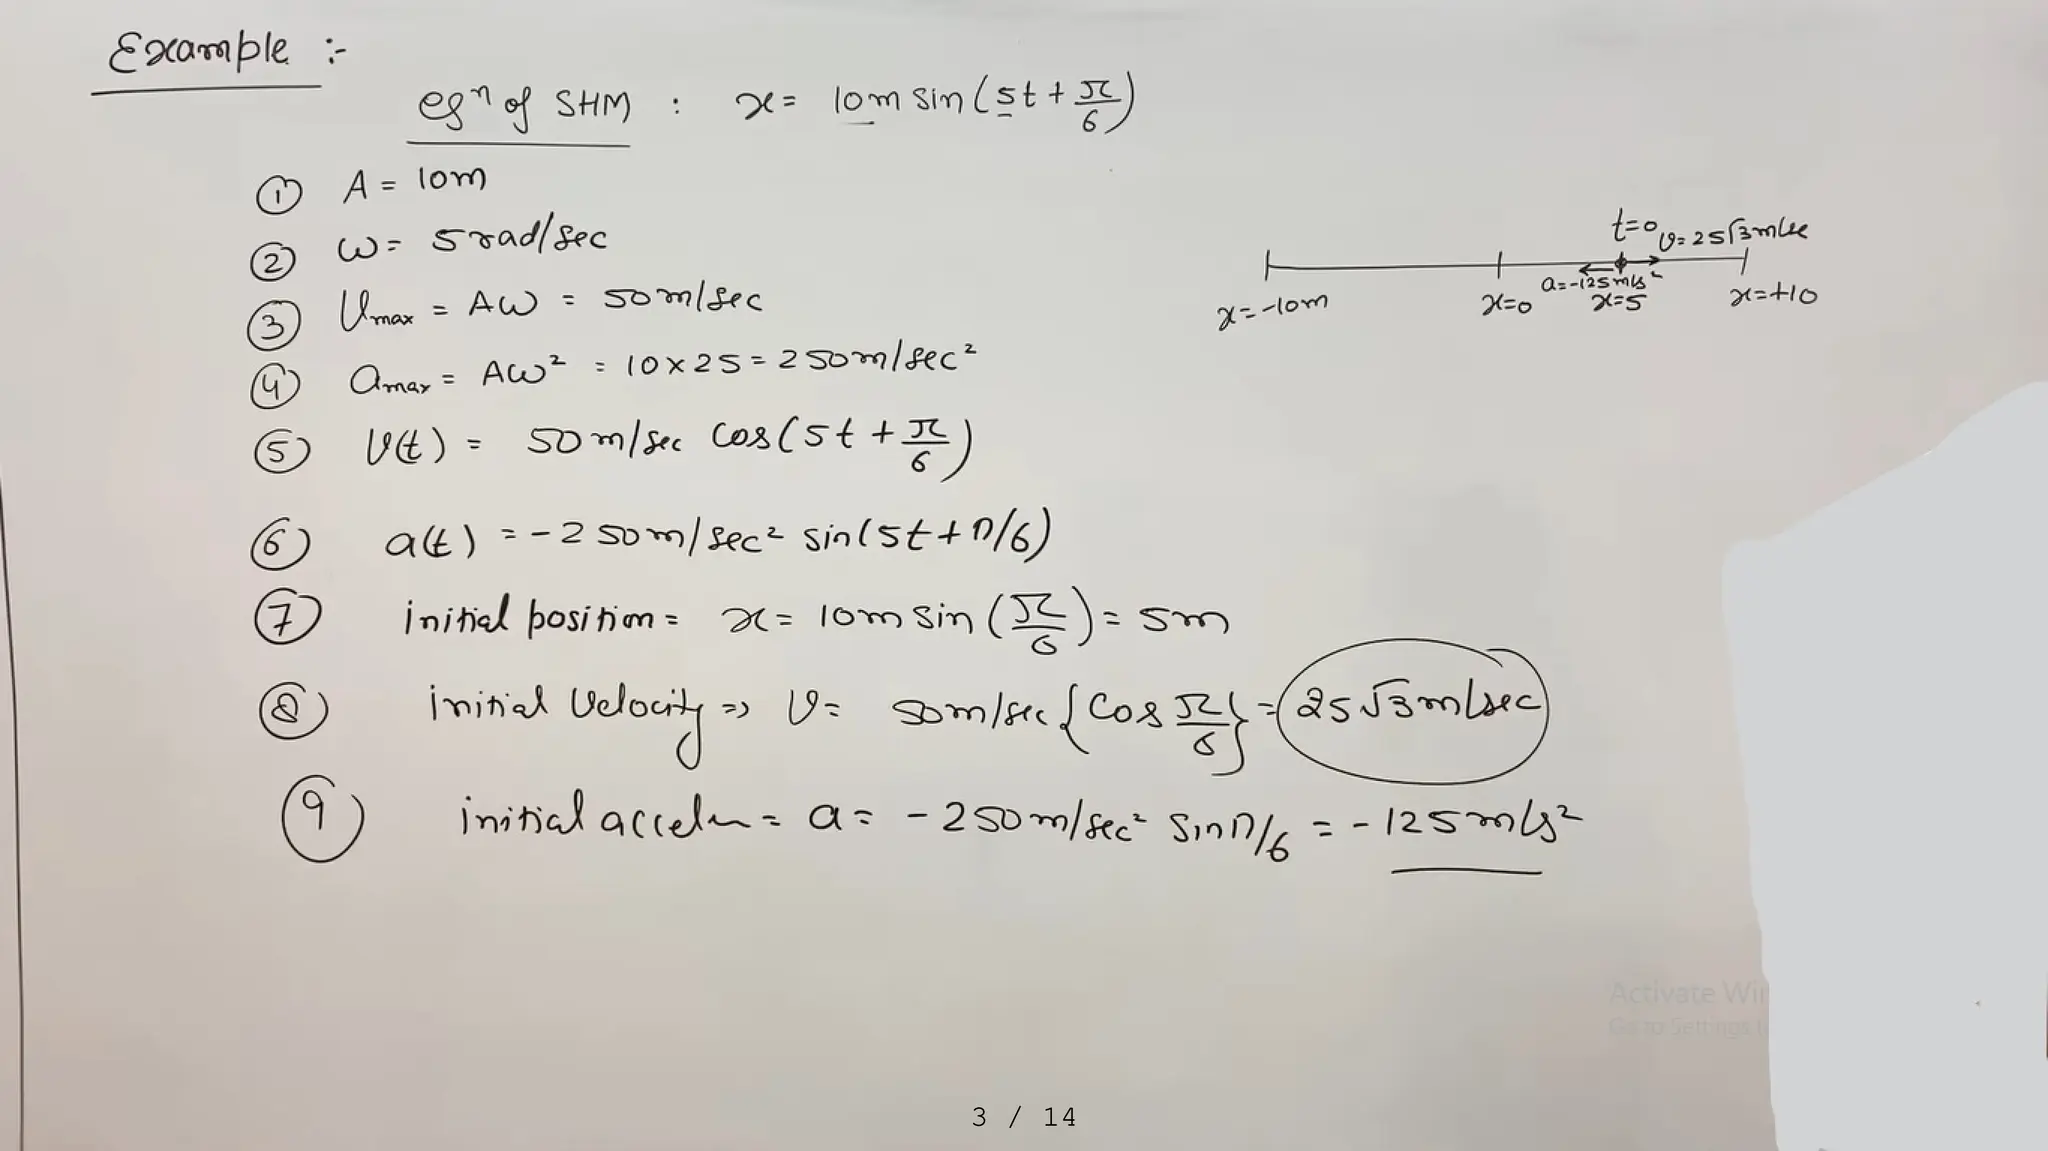 Example :-
eqⁿ of SHM : x = 10m sin(5t + π/6)
① A = 10m
② ω = 5 rad/sec
③ Vmax = Aω = 50m/sec
④ amax = Aω² = 10 x 25 = 250m/sec²
⑤ V(t) = 50 m/sec cos(5t + π/6)
⑥ a(t) = -250m/sec² sin(5t + π/6)
⑦ initial position = x = 10m sin(π/6) = 5m
⑧ initial Velocity => V = 50m/sec {cos π/6} = 25√3 m/sec
⑨ initial acceln = a = -250m/sec² sin π/6 = -125 m/s²
t=0
v=25√3 m/sec
a=-125 m/s²
x=-10m x=0 x=5 x=+10
Activate Wi
Go to Settings t
3 / 14